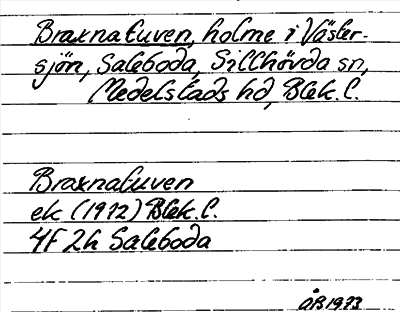 Braxnatuven, holme i Väster-
sjön, Saleboda, Sillhövda sn,
Medelstads hd, Blek. l.
Braxnatuven
ek (1972) Blek. l.
4F 2h Saleboda
ÅB 1973